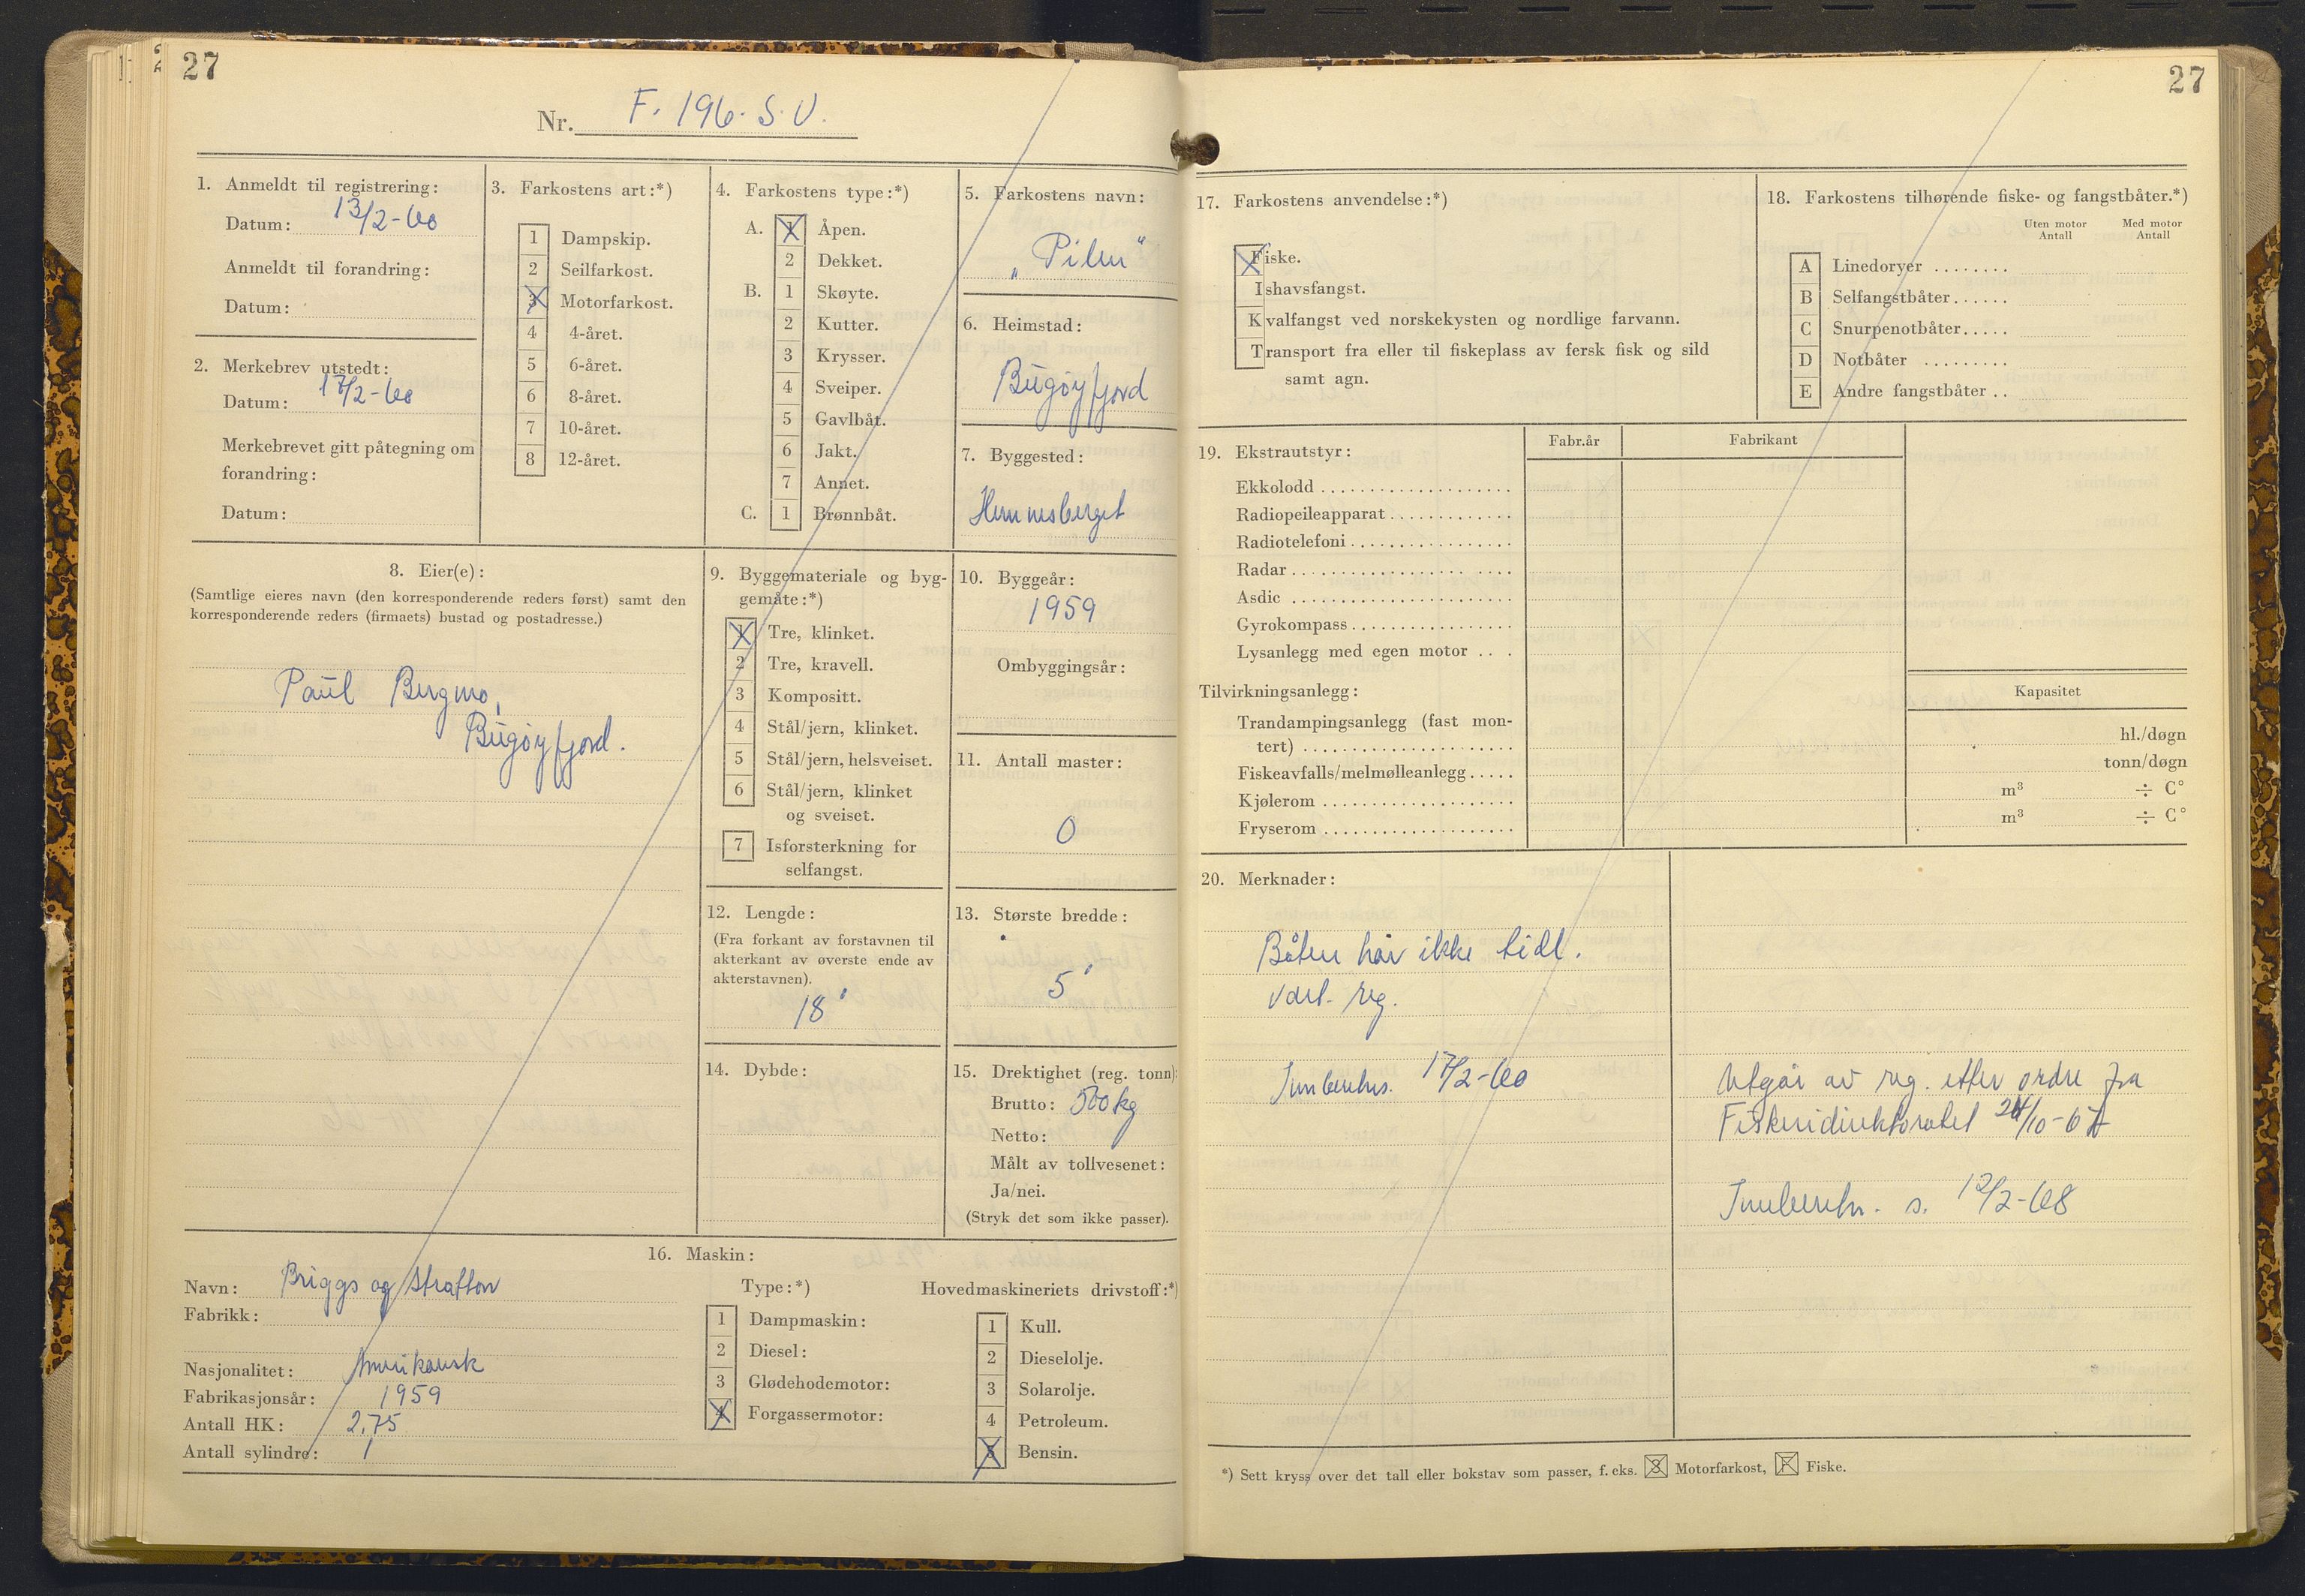 27
Nr. F. 196. S. V.
1. Anmeldt til registrering:
Datum: 13/2-60
Anmeldt til forandring:
Datum:
2. Merkebrev utstedt:
Datum: 17/2-60
Merkebrevet gitt påtegning om
forandring:
Datum:
3. Farkostens art:*)
1 Dampskip.
2 Seilfarkost.
3 Motorfarkost.
4 4-året.
5 6-året.
6 8-året.
7 10-året.
8 12-året.
4. Farkostens type:*)
A. 1 Åpen.
2 Dekket.
B. 1 Skøyte.
2 Kutter.
3 Krysser.
4 Sveiper.
5 Gavlbåt.
6 Jakt.
7 Annet.
C. 1 Brønnbåt.
5. Farkostens navn:
„Pilen"
6. Heimstad:
Bugøyfjord
7. Byggested:
Hemnesberget
8. Eier(e):
(Samtlige eieres navn (den korresponderende reders først) samt den
korresponderende reders (firmaets) bustad og postadresse.)
Paul Bergmo,
Bugøyfjord.
9. Byggemateriale og byg-
gemåte:*)
1 Tre, klinket.
2 Tre, kravell.
3 Kompositt.
4 Stål/jern, klinket.
5 Stål/jern, helsveiset.
6 Stål/jern, klinket
og sveiset.
7 Isforsterkning for
selfangst.
10. Byggeår:
1959
Ombyggingsår:
11. Antall master:
0
12. Lengde:
(Fra forkant av forstavnen til
akterkant av øverste ende av
akterstavnen).
18'
13. Største bredde:
5'
14. Dybde:
15. Drektighet (reg. tonn):
Brutto: 500 kg
Netto:
Målt av tollvesenet:
Ja/nei.
(Stryk det som ikke passer).
16. Maskin:
Navn: Briggs og Stratton
Fabrikk:
Nasjonalitet: Amerikansk
Fabrikasjonsår: 1959
Antall HK: 2,75
Antall sylindre: 1
Type:*)
1 Dampmaskin:
2 Diesel:
3 Glødehodemotor:
4 Forgassermotor:
Hovedmaskineriets drivstoff:*)
1 Kull.
2 Dieselolje.
3 Solarolje.
4 Petroleum.
5 Bensin.
27
17. Farkostens anvendelse:*)
Fiske.
Ishavsfangst.
Kvalfangst ved norskekysten og nordlige farvann.
Transport fra eller til fiskeplass av fersk fisk og sild
samt agn.
18. Farkostens tilhørende fiske- og fangstbåter.*)
Uten motor Med motor
Antall Antall
A Linedoryer ........
B Selfangstbåter......
C Snurpenotbåter.....
D Notbåter .........
E Andre fangstbåter ..
19. Ekstrautstyr: Fabr.år Fabrikant
Ekkolodd ....................
Radiopeileapparat.............
Radiotelefoni.................
Radar.................. ....
Asdic .......................
Gyrokompass.................
Lysanlegg med egen motor ....
Tilvirkningsanlegg: Kapasitet
Trandampingsanlegg (fast mon-
tert) ...................... hl./døgn
Fiskeavfalls/melmølleanlegg..... tonn/døgn
Kjølerom .................... m³ ÷ C°
Fryserom .................... m³ ÷ C°
20. Merknader:
Båten har ikke tidl.
vært reg.
17/2-60
Utgår av reg. etter ordre fra
Fiskeridirektoratet 24/10-67
s. 12/2-68
*) Sett kryss over det tall eller bokstav som passer, f. eks. 3 Motorfarkost, F Fiske.